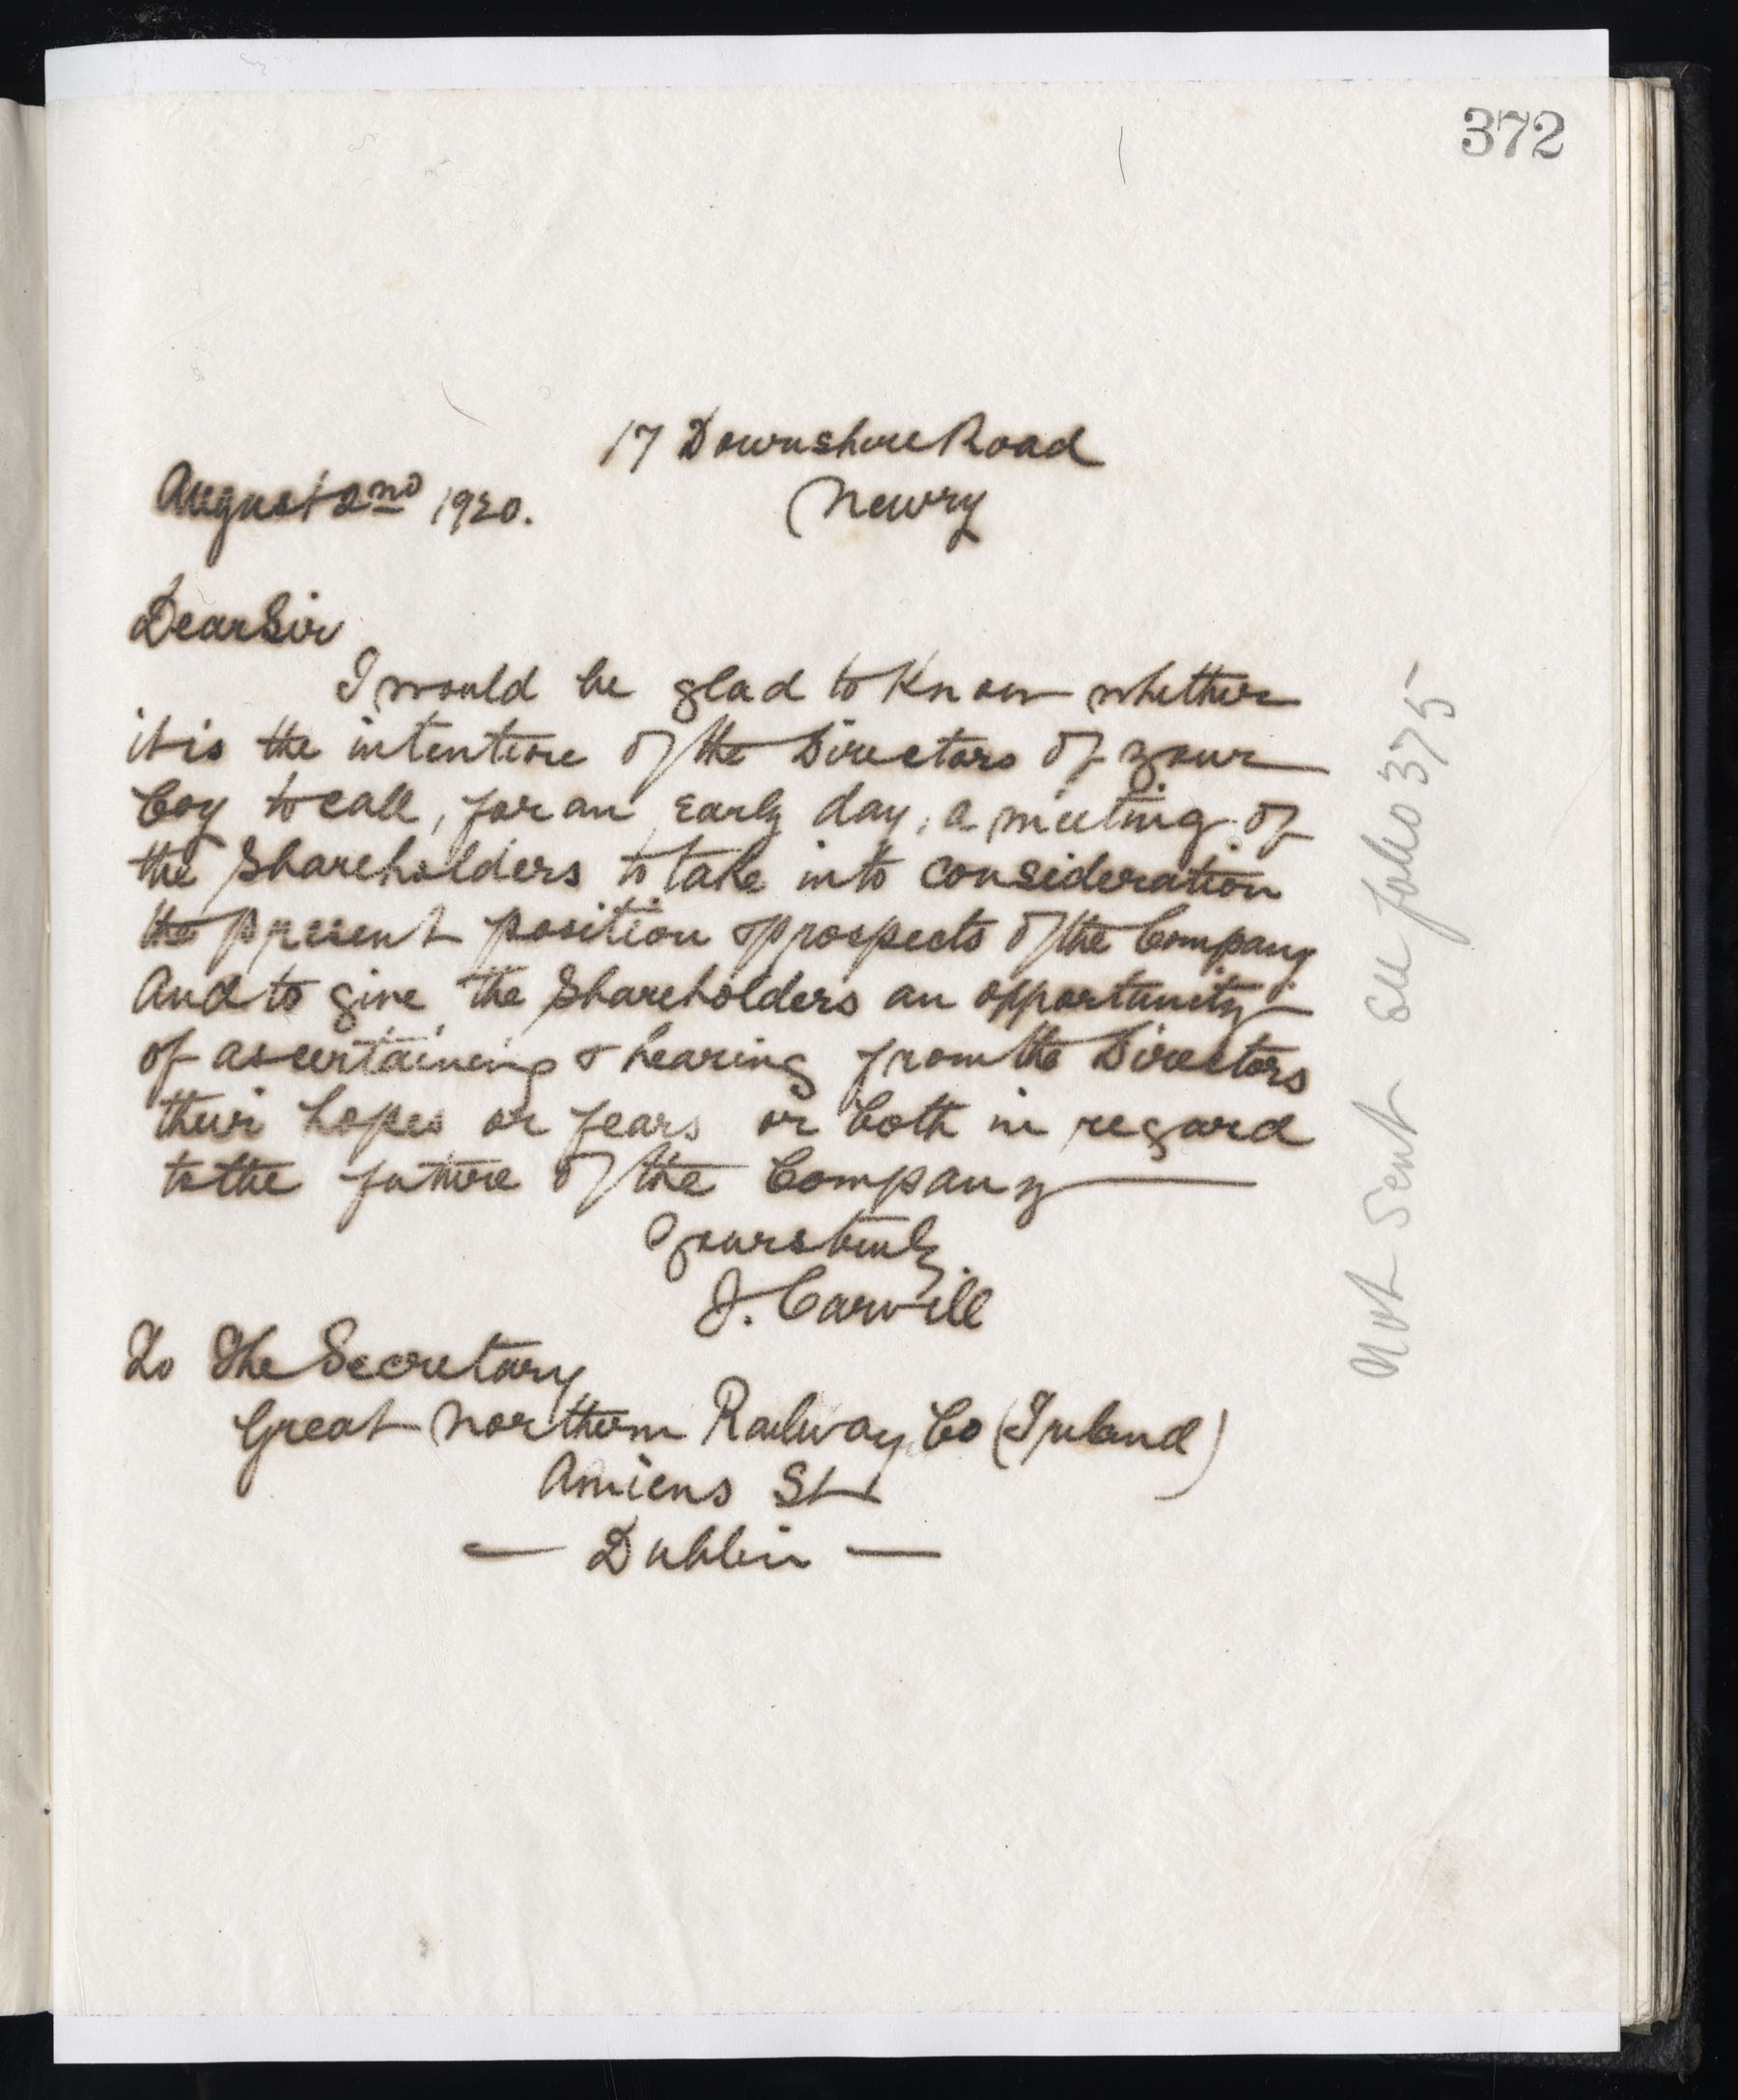 372
17 Downshire Road
August 2nd 1920.
Newry
Dear Sir
I would be glad to know whether
it is the intention of the Directors of your
Coy to call, for an early day, a meeting of
the Shareholders to take into consideration
the present position & prospects of the Company
And to give the Shareholders an opportunity
of ascertaining & hearing from the Directors
their hopes or fears or both in regard
to the future of the Company
Yours truly
J. Carvill
To The Secretary
Great Northern Railway Co (Ireland)
Amiens St
— Dublin —
Not Sent See folio 375